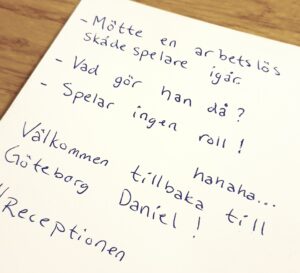 - Mötte en arbetslös
skådespelare igår.
- Vad gör han då?
- Spelar ingen roll!
hahaha...
Välkommen tillbaka till
Göteborg Daniel!
//Receptionen